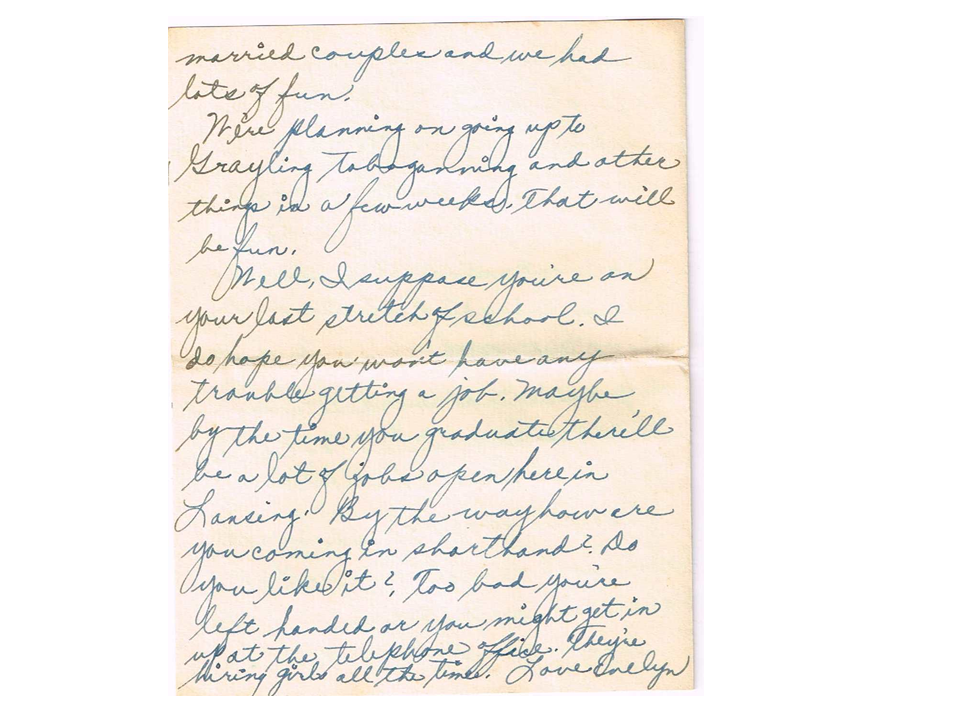 married couples and we had
lots of fun.
We're planning on going up to
Grayling tobaganning and other
things in a few weeks. That will
be fun.
Well, I suppose you're on
your last stretch of school. I
do hope you won't have any
trouble getting a job. Maybe
by the time you graduate there'll
be a lot of jobs open here in
Lansing. By the way how are
you coming in shorthand? Do
you like it? Too bad you're
left handed or you might get in
up at the telephone office. They're
hiring girls all the time. Love Evelyn